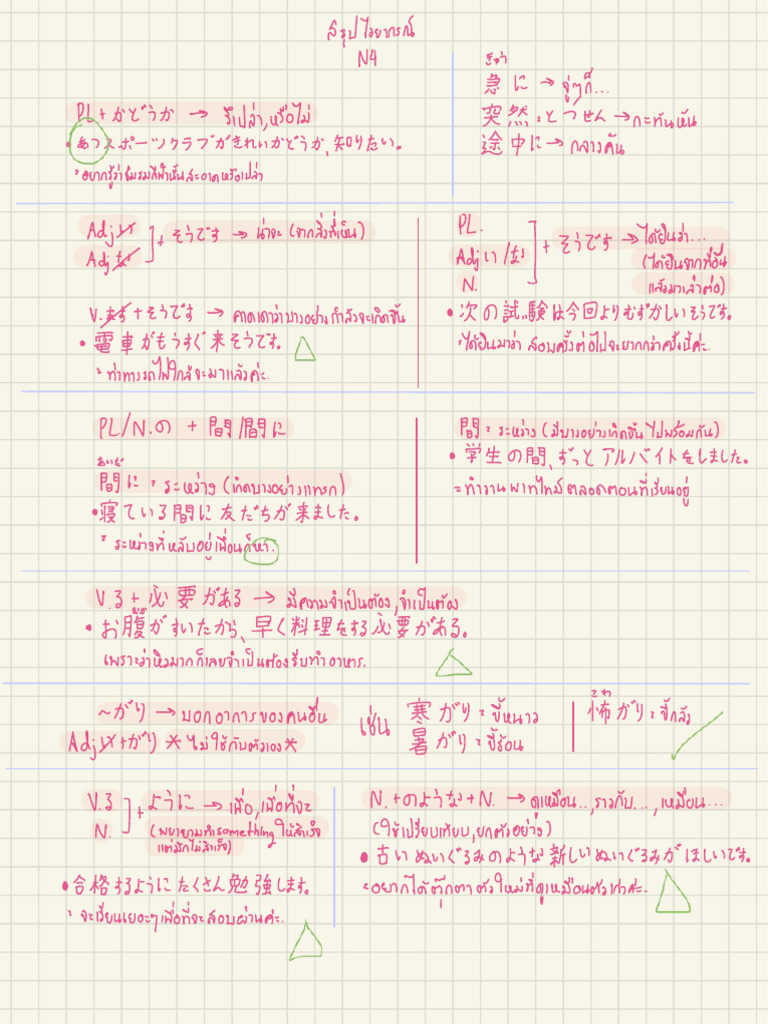 สรุปไวยากรณ์
N4
PL + かどうか → รึเปล่า, หรือไม่
• あつスポーツクラブがきれいかどうか、知りたい。
= อยากรู้ว่าชมรมกีฬานั้นสะอาดหรือเปล่า
きゅう
急に → จู่ๆก็...
突然 = とつぜん → กะทันหัน
途中に → กลางคัน
Adjい
Adjな
+ そうです → น่าจะ (จากสิ่งที่เห็น)
V.ます + そうです → คาดเดาว่าบางอย่างกำลังจะเกิดขึ้น
• 電車がもうすぐ来そうです。
= ท่าทางรถไฟใกล้จะมาแล้วค่ะ.
PL.
Adj い/な
N.
+ そうです → ได้ยินว่า...
(ได้ยินจากที่อื่น
แล้วมาเล่าต่อ)
• 次の試験は今回よりむずかしいそうです。
= ได้ยินมาว่า สอบครั้งต่อไปจะยากกว่าครั้งนี้ค่ะ.
PL/N.の + 間/間に
あいだ
間に = ระหว่าง (เกิดบางอย่างแทรก)
• 寝ている間に友だちが来ました。
= ระหว่างที่หลับอยู่เพื่อนก็มา.
間 = ระหว่าง (มีบางอย่างเกิดขึ้นไปพร้อมกัน)
• 学生の間、ずっとアルバイトをしました。
= ทำงานพาทไทม์ตลอดตอนที่เรียนอยู่
V.3 + 必要がある → มีความจำเป็นต้อง, จำเป็นต้อง
• お腹がすいたから、早く料理をする必要がある。
เพราะว่าหิวมากก็เลยจำเป็นต้องรีบทำอาหาร.
~がり → บอกอาการของคนอื่น
Adjい+がり *ไม่ใช้กับตัวเอง*
เช่น
寒がり = ขี้หนาว
暑がり = ขี้ร้อน
こわ
怖がり = ขี้กลัว
V.3
N.
+ ように → เพื่อ, เพื่อที่จะ
(พยายามทำsomethingให้สำเร็จ
แต่มักไม่สำเร็จ)
• 合格するようにたくさん勉強します。
= จะเรียนเยอะๆเพื่อที่จะสอบผ่านค่ะ.
N. + のような + N. → ดูเหมือน..., ราวกับ..., เหมือน...
(ใช้เปรียบเทียบ, ยกตัวอย่าง)
• 古いぬいぐるみのような新しいぬいぐるみがほしいです。
= อยากได้ตุ๊กตาตัวใหม่ที่ดูเหมือนตัวเก่าค่ะ.